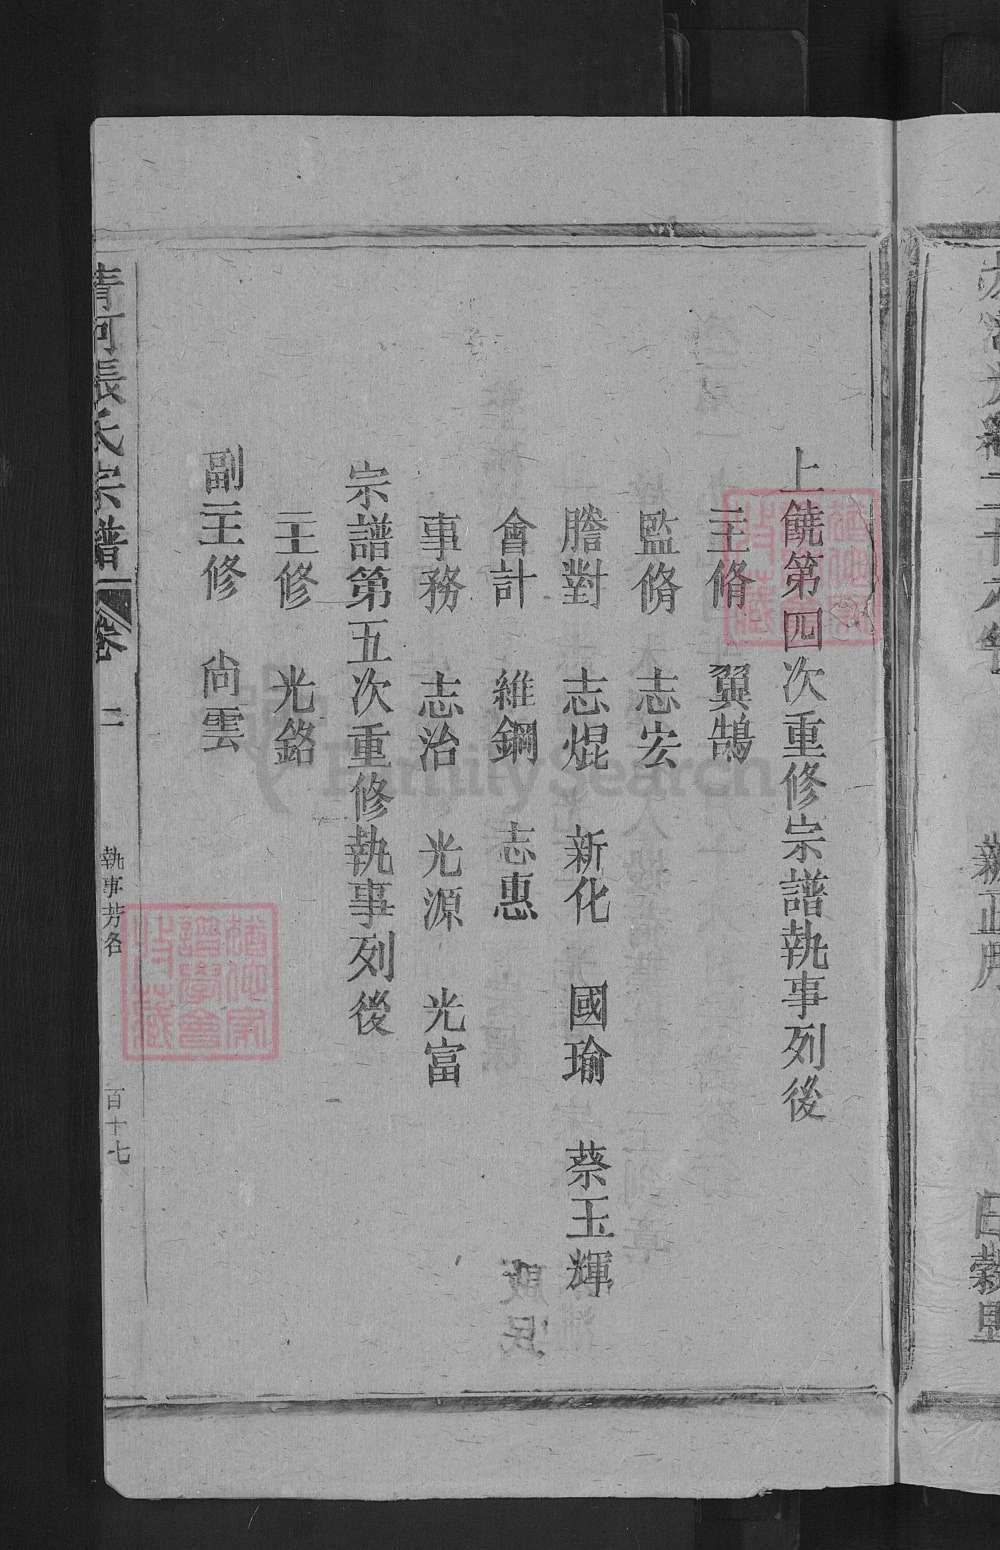 上饒第四次重修宗譜執事列後
主脩 翼鵠
監脩 志宏
謄對 志焜 新化 國瑜 蔡玉輝
會計 維鋼 志惠
事務 志治 光源 光富
宗譜第五次重修執事列後
主修 光鉻
副主修 尚雲
清河張氏宗譜 卷二 執事芳名 百十七
FamilySearch